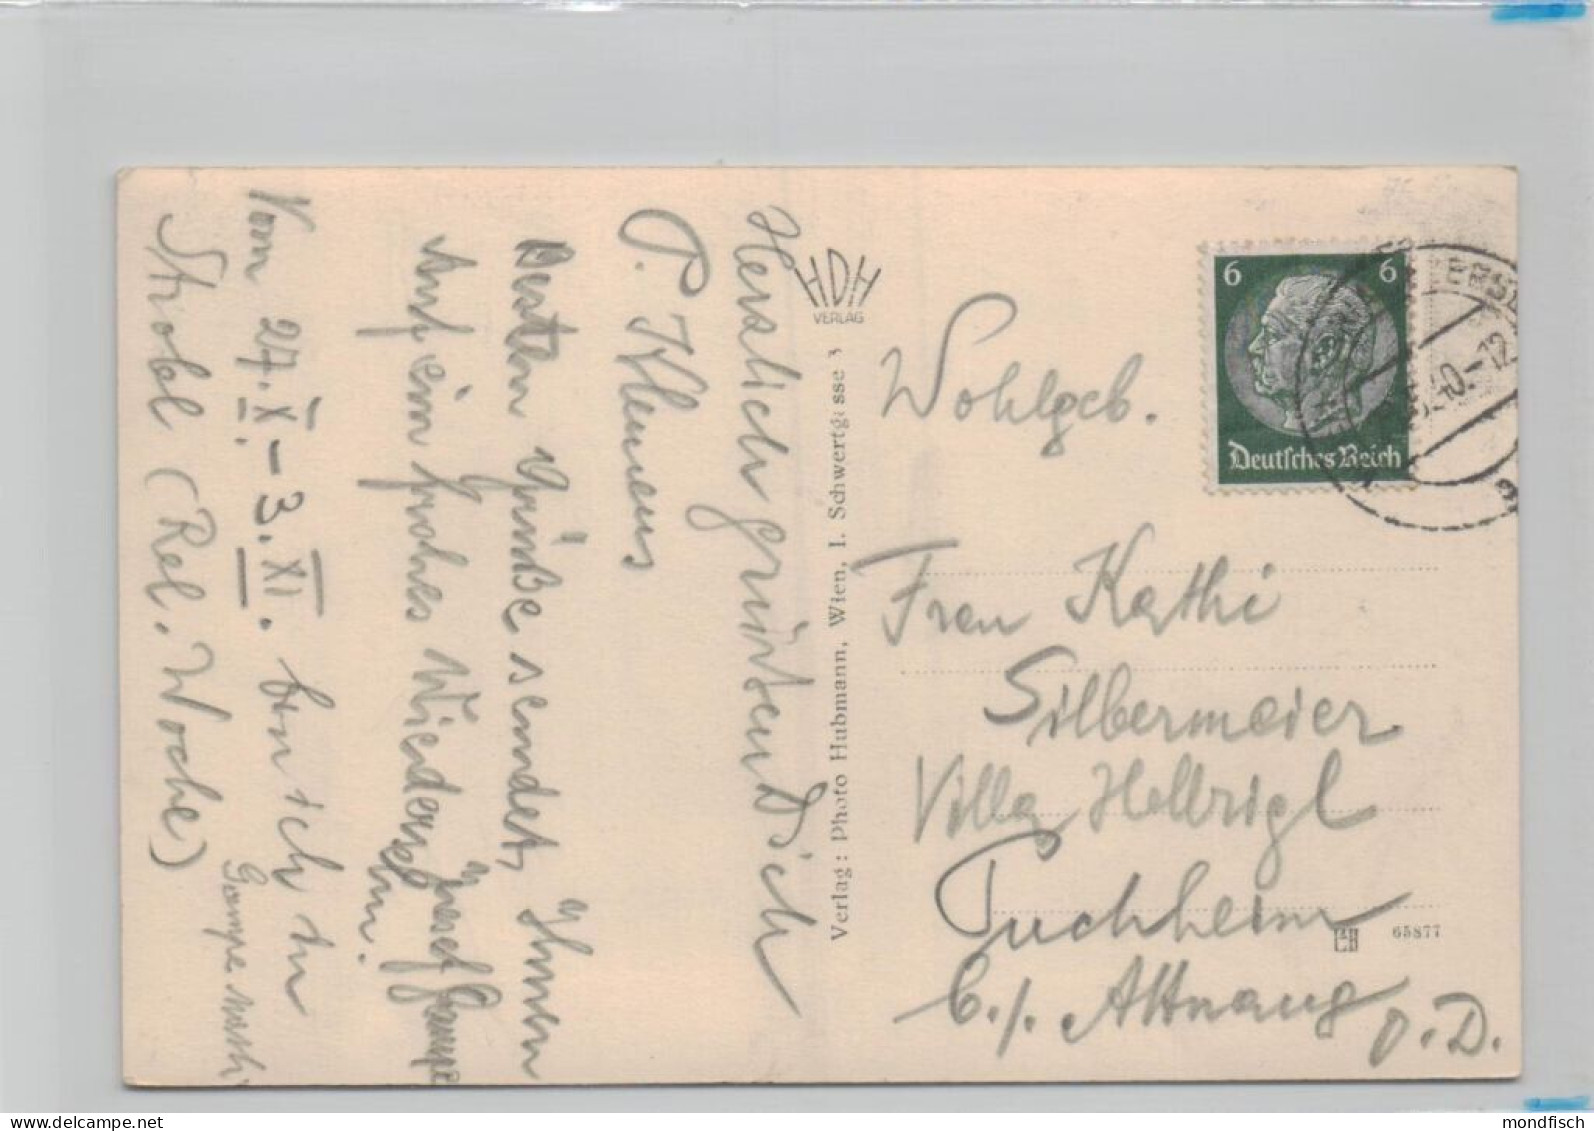 Herzlich grüßend Dich
P. Klemens
Besten Grüße sendet, Ihnen
Auf ein frohes Wiedersehn.
Josef Gampe
Vom 27. X. – 3. XI. bin ich in
Strobl (Rel. Woche)
HDH
VERLAG
Verlag: Photo Hubmann, Wien, I. Schwertgasse 3
6 6
Deutsches Reich
40.-12
Wohlgeb.
Frau Kathi
Silbermaier
Villa Hellrigl
Puchheim
b./. Attnang
O.D.
65877
mondfisch